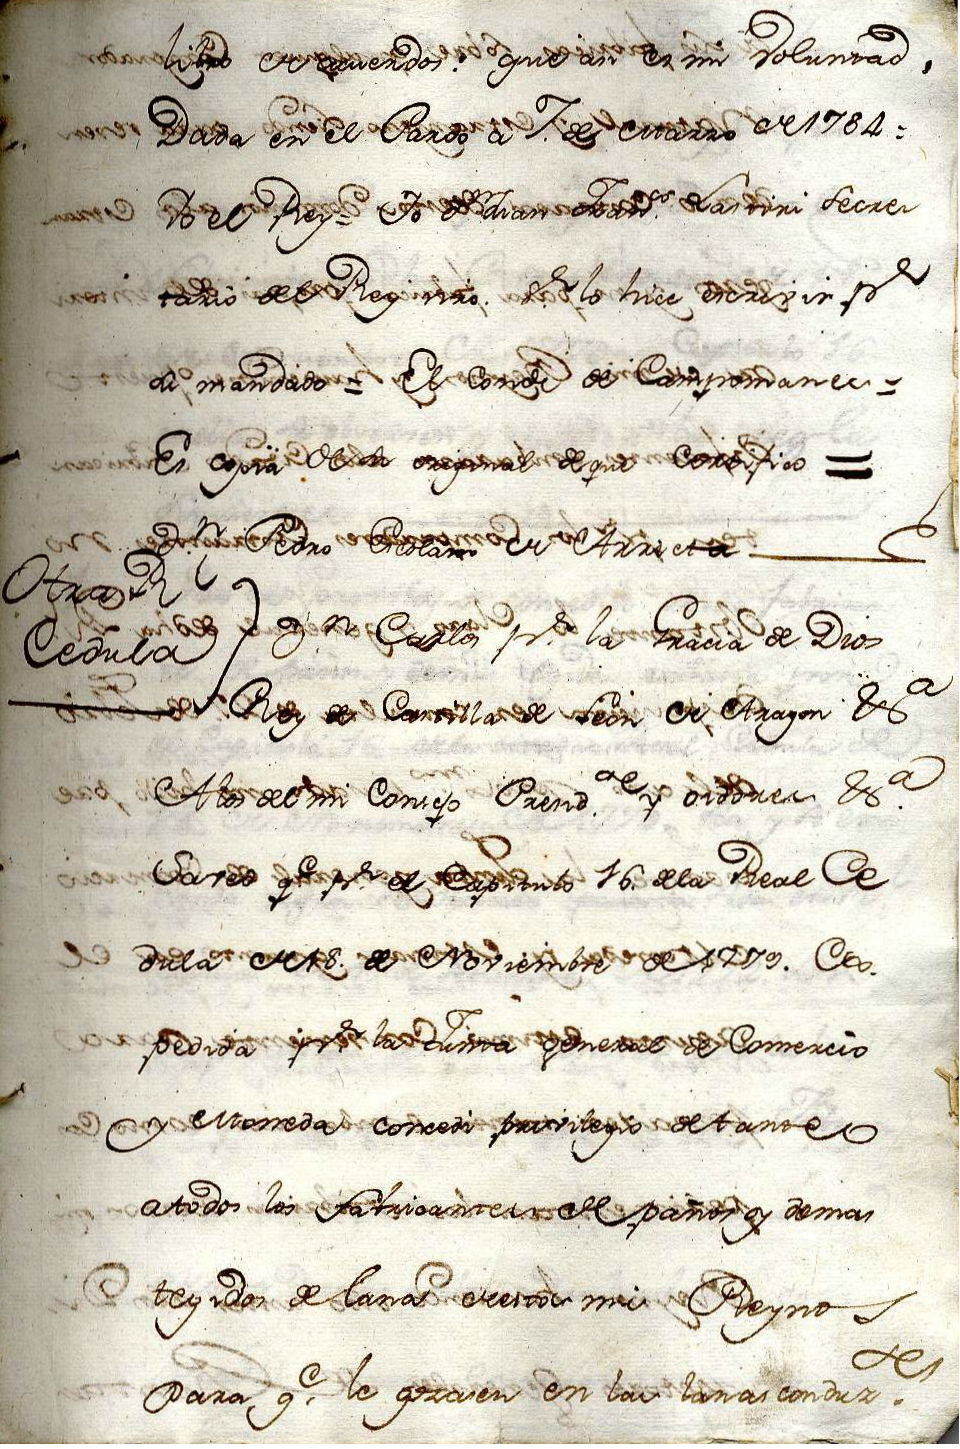 libro de acuerdos. que asi es mi voluntad,
Dada en el Pardo a 7. de Marzo de 1784=
Yo el Rey= Yo dn Juan Franco. Lastiri Secre
tario del Rey nro. Sr. lo hice escrivir pr
su mandado = El Conde de Campomanes =
Es copia de la original de que Certifico =
Dn. Pedro Escolano de Arrieta
Otra Rl
Cedula
Dn Carlos pr. la Gracia de Dios
Rey de Castilla de Leon de Aragon &a
A los del mi Consejo Presid.te y oidores &a.
Saved qe pr el Capitulo 16. de la Real Ce
dula de 18. de Noviembre de 1779. Ex-
pedida pr la Junta general de Comercio
y Moneda concedi privilegio de tanteo
a todos los fabricantes de paños y demas
tegidos de lanas de estos mis Reynos
para qe. le gozasen en las lanas conduz.tes